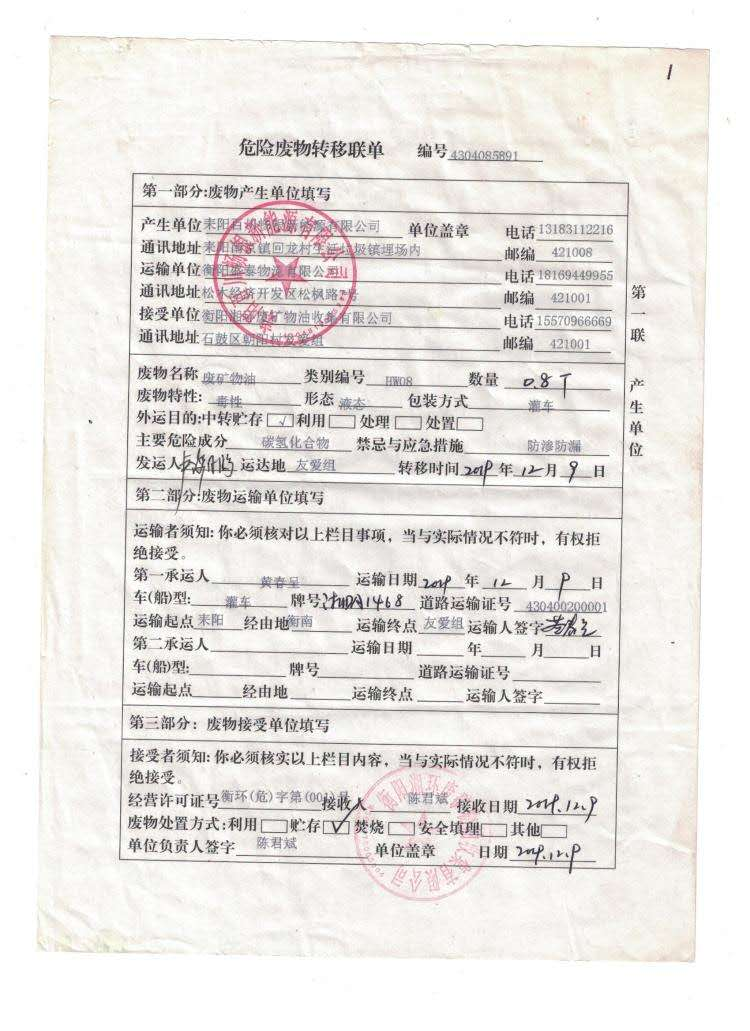 1
危险废物转移联单 编号 4304085891
第一部分:废物产生单位填写
产生单位 耒阳百 有限公司 单位盖章 电话 13183112216
通讯地址 耒阳南京镇回龙村生活垃圾镇埋场内 邮编 421008
运输单位 衡阳 泰物流有限公司 电话 18169449955
通讯地址 松木经济开发区松枫路 号 邮编 421001
接受单位 衡阳湘 矿物油收集有限公司 电话 15570966669
通讯地址 石鼓区朝阳村友爱组 邮编 421001
废物名称 废矿物油 类别编号 HW08 数量 0.8T
废物特性: 毒性 形态 液态 包装方式 灌车
外运目的:中转贮存 √ 利用 处理 处置
主要危险成分 碳氢化合物 禁忌与应急措施 防渗防漏
发运人 运达地 友爱组 转移时间 2019 年 12 月 9 日
第二部分:废物运输单位填写
运输者须知:你必须核对以上栏目事项，当与实际情况不符时，有权拒
绝接受。
第一承运人 黄春呈 运输日期 2019 年 12 月 9 日
车(船)型: 灌车 牌号 1468 道路运输证号 430400200001
运输起点 耒阳 经由地 衡南 运输终点 友爱组 运输人签字
第二承运人 运输日期 年 月 日
车(船)型: 牌号 道路运输证号
运输起点 经由地 运输终点 运输人签字
第三部分: 废物接受单位填写
接受者须知:你必须核实以上栏目内容，当与实际情况不符时，有权拒
绝接受。
经营许可证号 衡环(危)字第(001)号 接收人 陈君斌 接收日期 2019.12.9
废物处置方式:利用 贮存 √ 焚烧 安全填埋 其他
单位负责人签字 陈君斌 单位盖章 日期 2019.12.9
第一联 产生单位